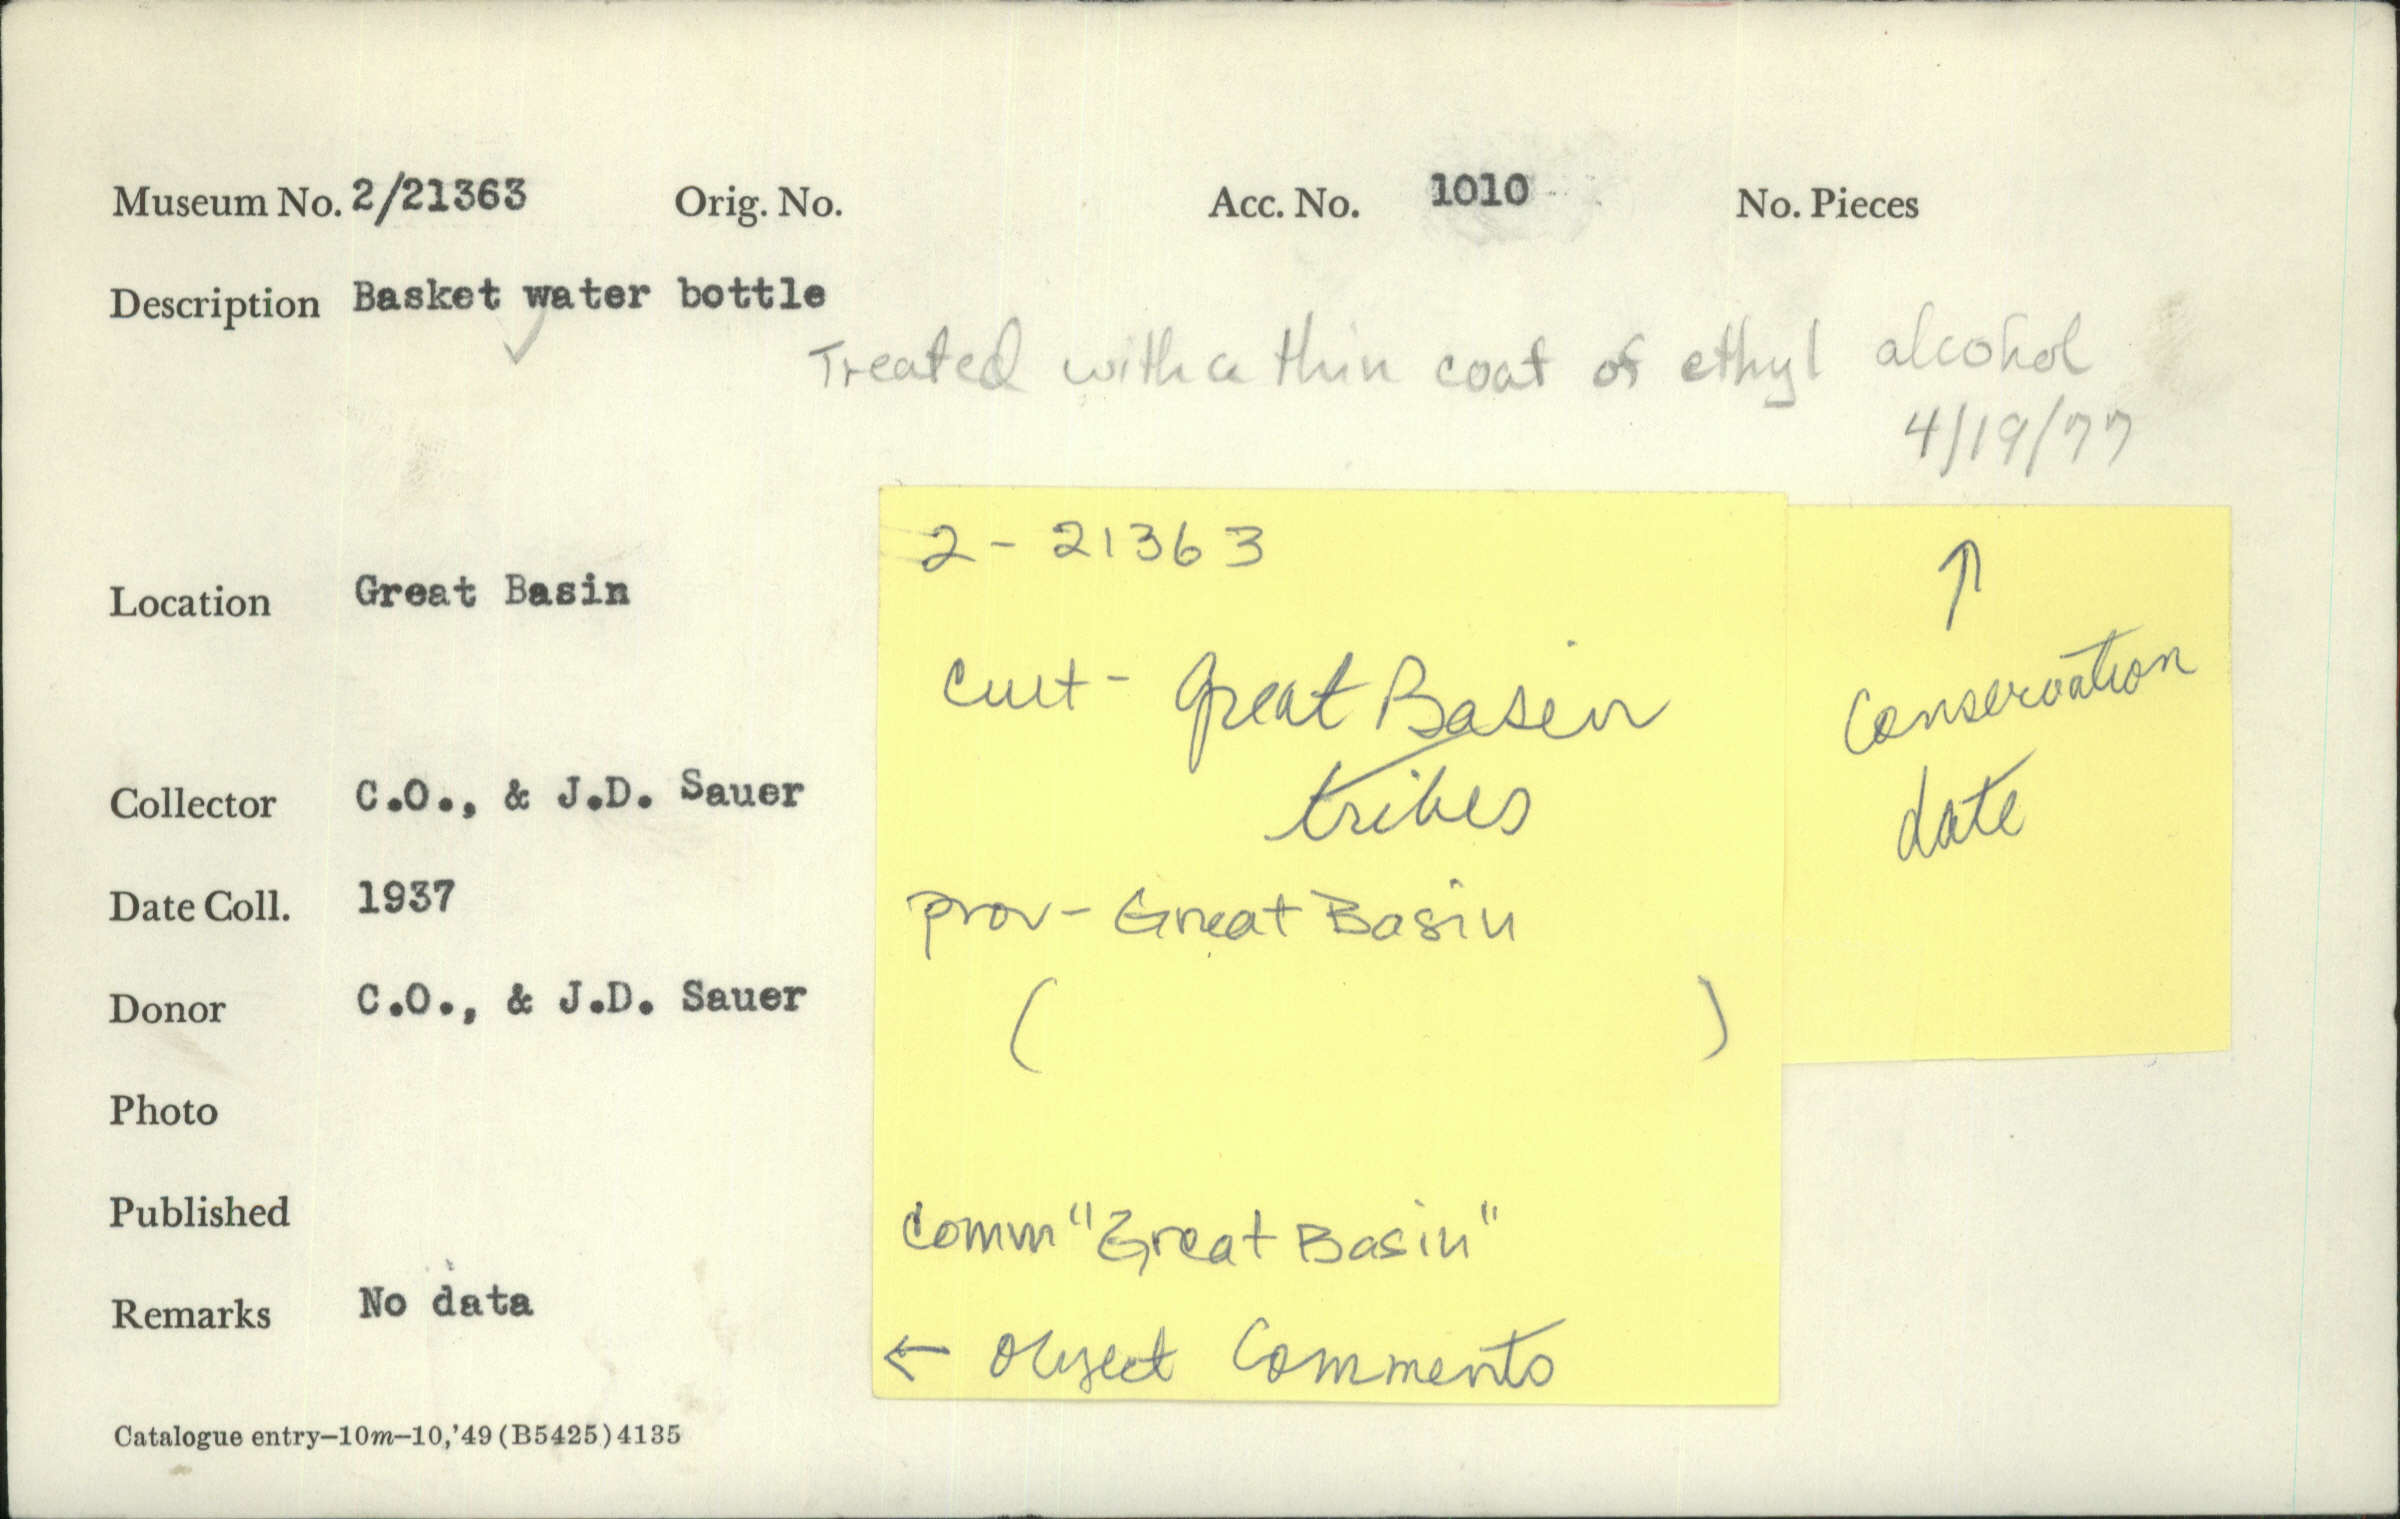 Museum No. 2/21363 Orig. No. Acc. No. 1010 No. Pieces
Description Basket water bottle
Treated with a thin coat of ethyl alcohol
4/19/77
Location Great Basin
Collector C.O., & J.D. Sauer
Date Coll. 1937
Donor C.O., & J.D. Sauer
Photo
Published
Remarks No data
Catalogue entry–10m–10,'49 (B5425) 4135
2 - 21363
Cult - Great Basin
tribes
prov - Great Basin
( )
Comm "Great Basin"
← Object Comments
↑
Conservation
date